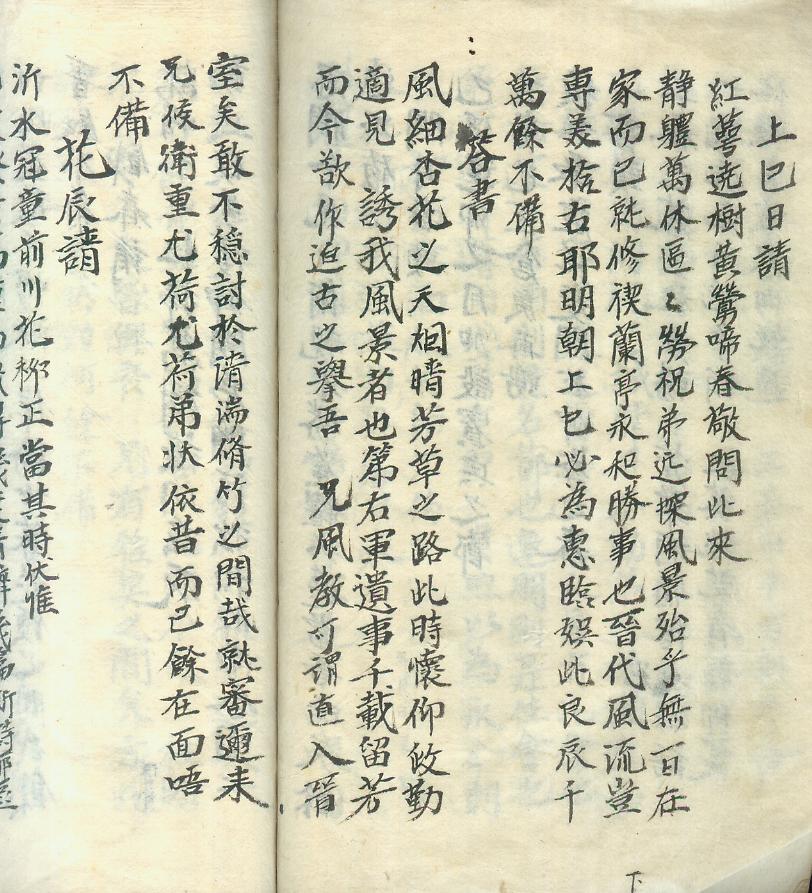 上巳日請
紅萼遶樹黃鶯啼春敬問此來
靜軆萬休區〻勞祝弟近探風景殆乎無一日在
家而已就修禊蘭亭永和勝事也晉代風流豈
專羙於古耶明朝上巳必為惠臨娱此良辰千
萬餘不備
答書
風細杏花之天烟晴芳草之路此時懷仰政勤
適見 誘我風景者也第右軍遺事千載留芳
而今欲作追古之擧吾 兄風敎可謂直入晉
室矣敢不穩討於淸湍脩竹之間哉就審邇来
兄候衛重尤荷尤荷弟狀依昔而已餘在面唔
不備
花辰請
沂水冠童前川花柳正當其時伏惟